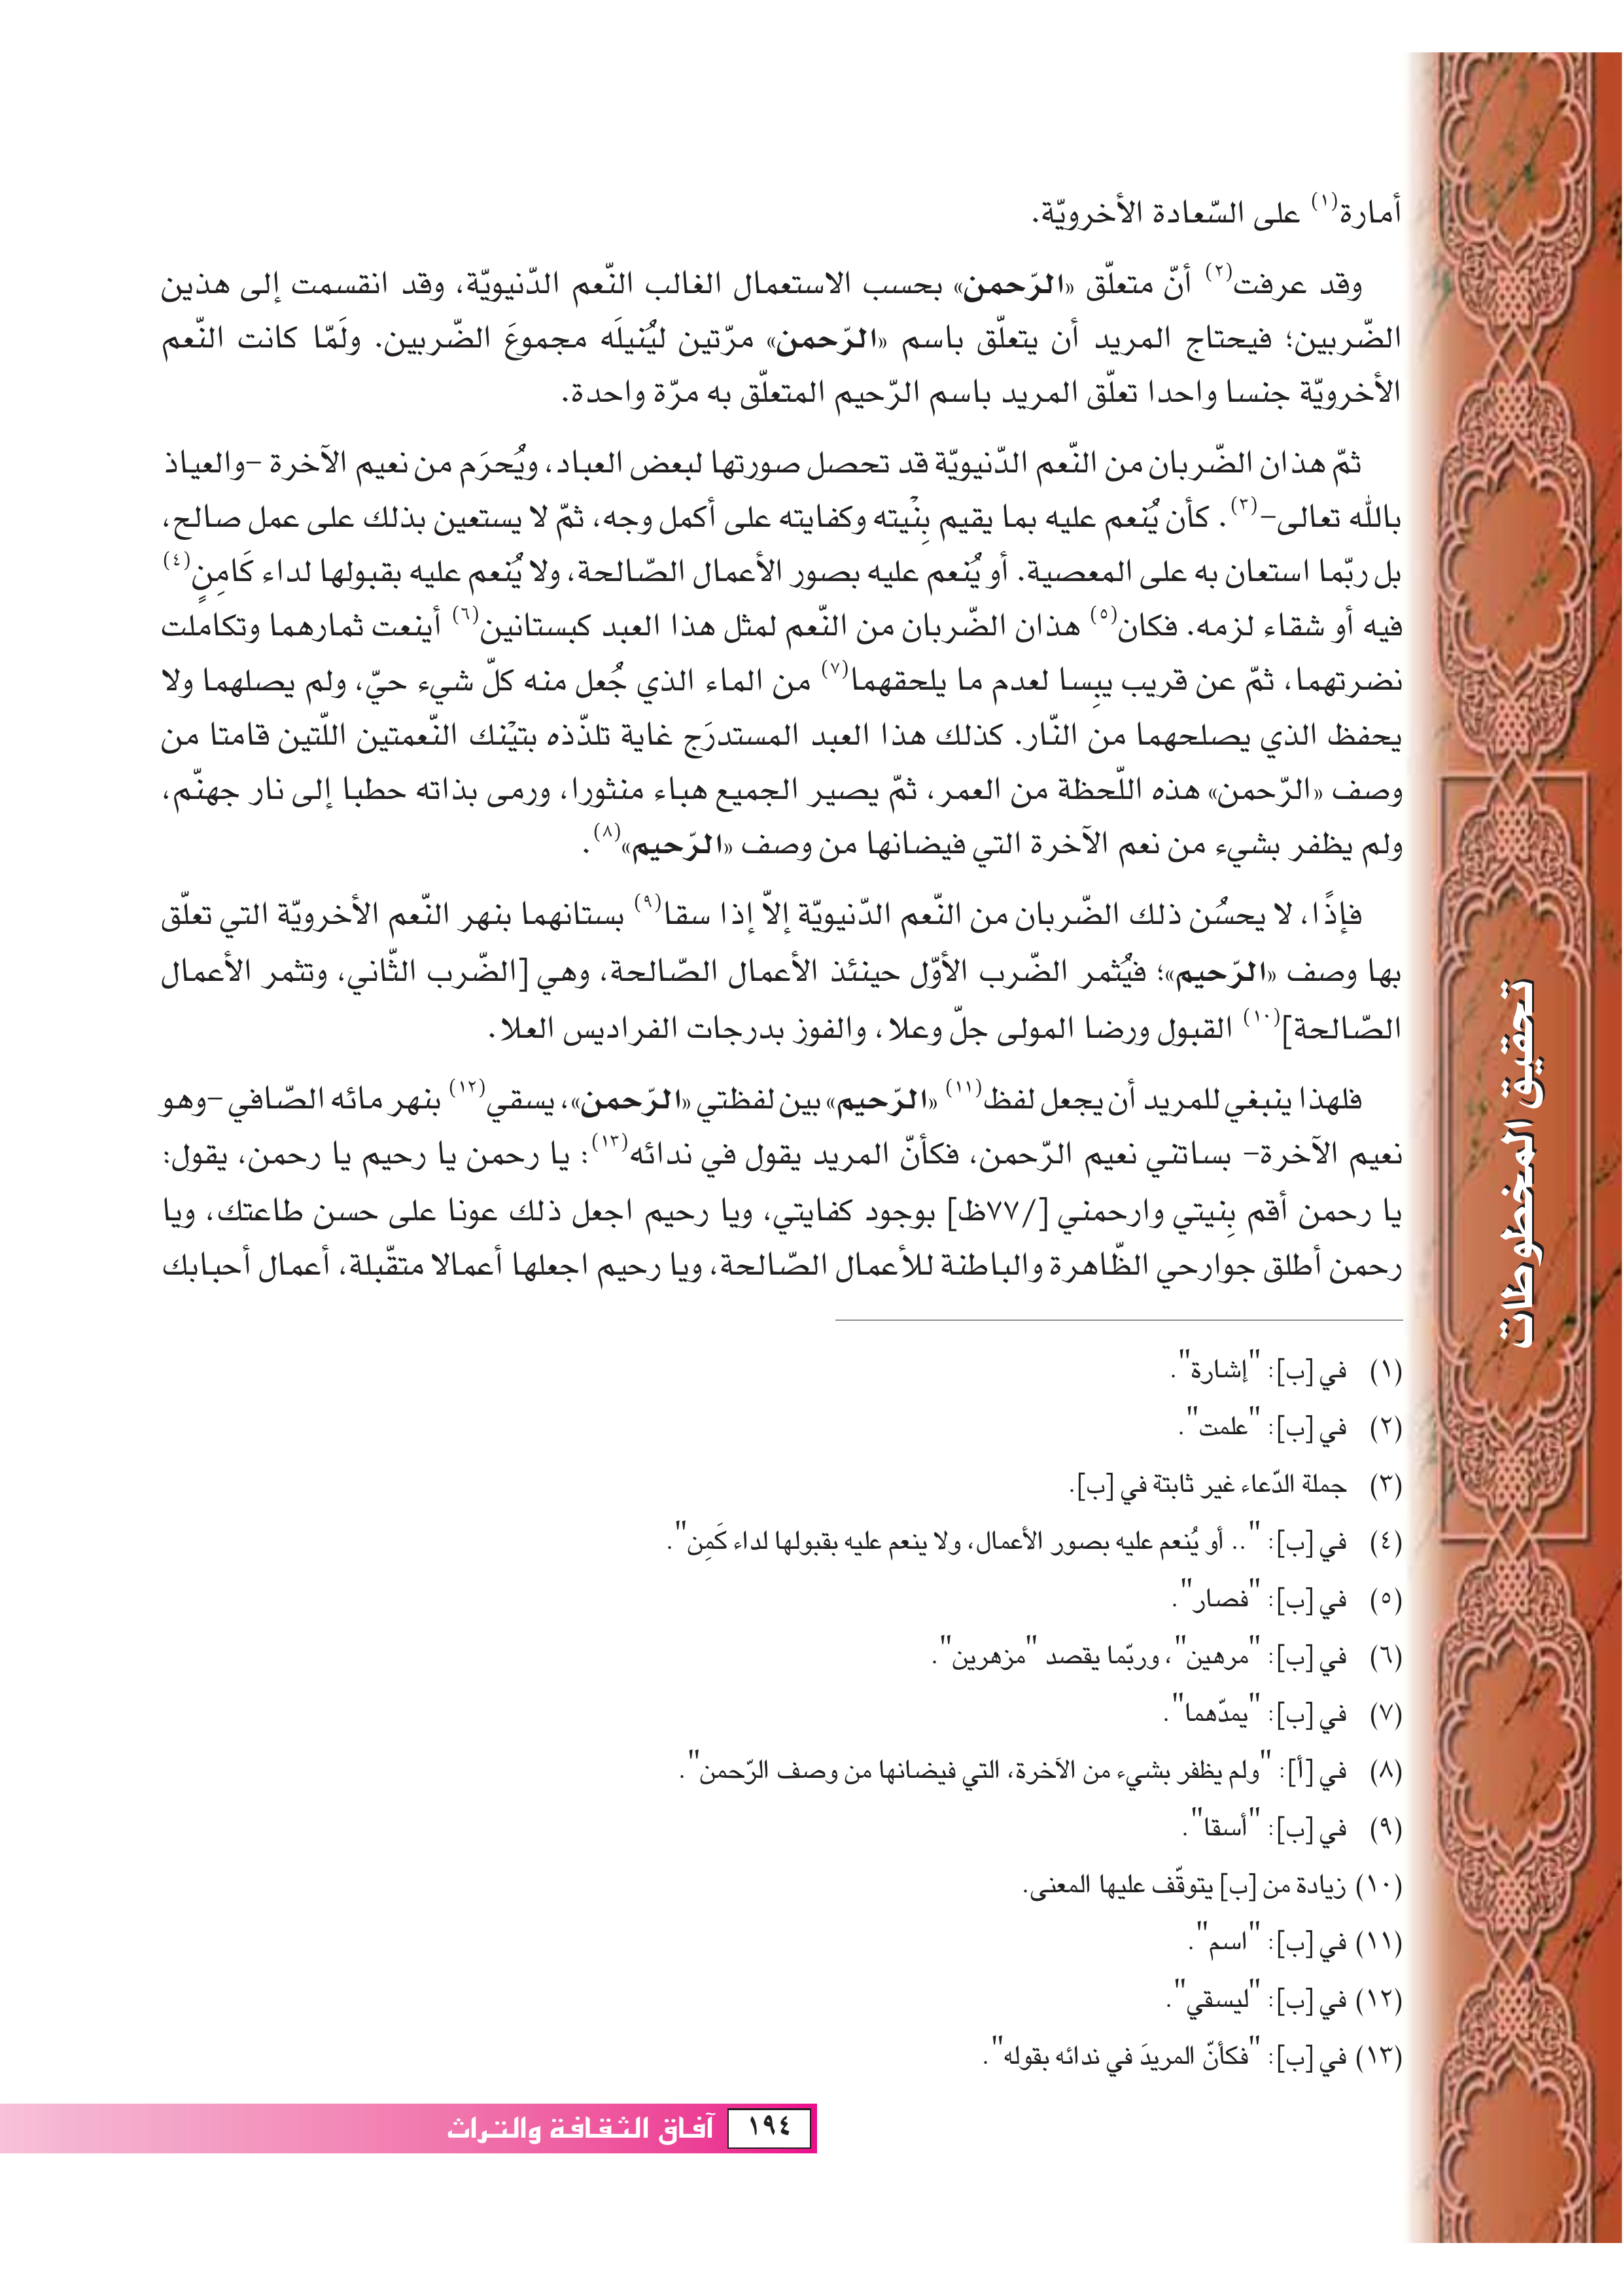 أمارة(١) على السّعادة الأخرويّة.
وقد عرفت(٢) أنّ متعلّق «الرّحمن» بحسب الاستعمال الغالب النّعم الدّنيويّة، وقد انقسمت إلى هذين
الضّربين؛ فيحتاج المريد أن يتعلّق باسم «الرّحمن» مرّتين ليُنيلَه مجموعَ الضّربين. ولَمّا كانت النّعم
الأخرويّة جنسا واحدا تعلّق المريد باسم الرّحيم المتعلّق به مرّة واحدة.
ثمّ هذان الضّربان من النّعم الدّنيويّة قد تحصل صورتها لبعض العباد، ويُحرَم من نعيم الآخرة –والعياذ
بالله تعالى–(٣). كأن يُنعم عليه بما يقيم بِنْيته وكفايته على أكمل وجه، ثمّ لا يستعين بذلك على عمل صالح،
بل ربّما استعان به على المعصية. أو يُنعم عليه بصور الأعمال الصّالحة، ولا يُنعم عليه بقبولها لداء كَامِنٍ(٤)
فيه أو شقاء لزمه. فكان(٥) هذان الضّربان من النّعم لمثل هذا العبد كبستانين(٦) أينعت ثمارهما وتكاملت
نضرتهما، ثمّ عن قريب يبِسا لعدم ما يلحقهما(٧) من الماء الذي جُعل منه كلّ شيء حيّ، ولم يصلهما ولا
يحفظ الذي يصلحهما من النّار. كذلك هذا العبد المستدرَج غاية تلذّذه بتيْنك النّعمتين اللّتين قامتا من
وصف «الرّحمن» هذه اللّحظة من العمر، ثمّ يصير الجميع هباء منثورا، ورمى بذاته حطبا إلى نار جهنّم،
ولم يظفر بشيء من نعم الآخرة التي فيضانها من وصف «الرّحيم»(٨).
فإذًا، لا يحسُن ذلك الضّربان من النّعم الدّنيويّة إلاّ إذا سقا(٩) بستانهما بنهر النّعم الأخرويّة التي تعلّق
بها وصف «الرّحيم»؛ فيُثمر الضّرب الأوّل حينئذ الأعمال الصّالحة، وهي [الضّرب الثّاني، وتثمر الأعمال
الصّالحة](١٠) القبول ورضا المولى جلّ وعلا، والفوز بدرجات الفراديس العلا.
فلهذا ينبغي للمريد أن يجعل لفظ(١١) «الرّحيم» بين لفظتي «الرّحمن»، يسقي(١٢) بنهر مائه الصّافي –وهو
نعيم الآخرة– بساتني نعيم الرّحمن، فكأنّ المريد يقول في ندائه(١٣): يا رحمن يا رحيم يا رحمن، يقول:
يا رحمن أقم بِنيتي وارحمني [/٧٧ظ] بوجود كفايتي، ويا رحيم اجعل ذلك عونا على حسن طاعتك، ويا
رحمن أطلق جوارحي الظّاهرة والباطنة للأعمال الصّالحة، ويا رحيم اجعلها أعمالا متقّبلة، أعمال أحبابك
(١) في [ب]: "إشارة".
(٢) في [ب]: "علمت".
(٣) جملة الدّعاء غير ثابتة في [ب].
(٤) في [ب]: ".. أو يُنعم عليه بصور الأعمال، ولا ينعم عليه بقبولها لداء كَمِن".
(٥) في [ب]: "فصار".
(٦) في [ب]: "مرهين"، وربّما يقصد "مزهرين".
(٧) في [ب]: "يمدّهما".
(٨) في [أ]: "ولم يظفر بشيء من الآخرة، التي فيضانها من وصف الرّحمن".
(٩) في [ب]: "أسقا".
(١٠) زيادة من [ب] يتوقّف عليها المعنى.
(١١) في [ب]: "اسم".
(١٢) في [ب]: "ليسقي".
(١٣) في [ب]: "فكأنّ المريدَ في ندائه بقوله".
١٩٤ آفاق الثقافة والتراث
تحقيق المخطوطات